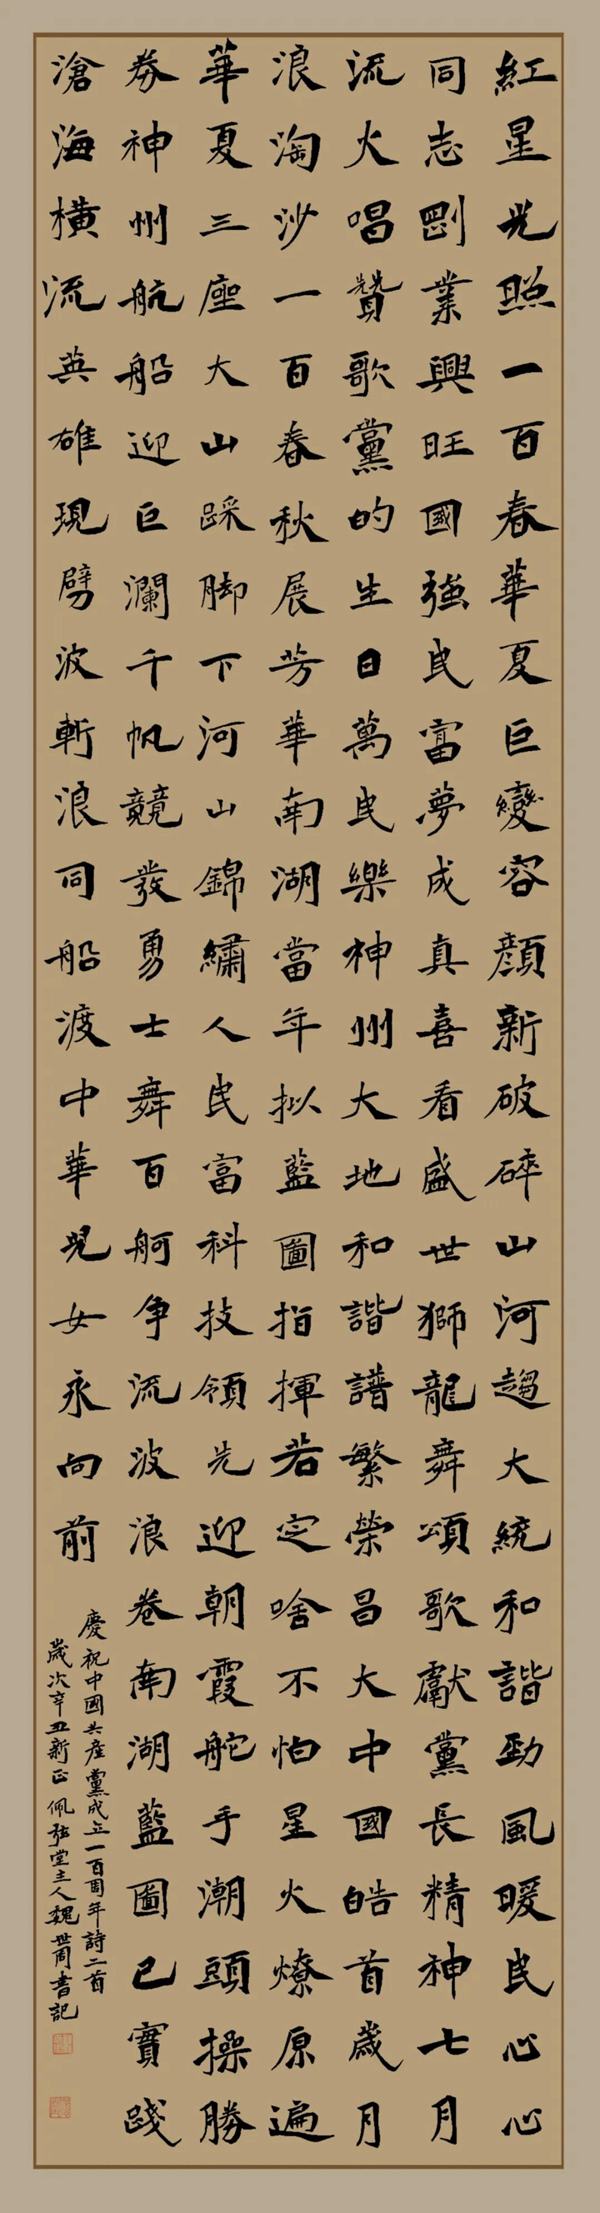 紅星光照一百春華夏巨變容顏新破碎山河趨大統和諧勁風暖民心心
同志剛業興旺國強民富夢成真喜看盛世獅龍舞頌歌獻黨長精神七月
流火唱贊歌黨的生日萬民樂神州大地和諧譜繁榮昌大中國皓首歲月
浪淘沙一百春秋展芳華南湖當年拟藍圖指揮若定啥不怕星火燎原遍
華夏三座大山踩脚下河山錦繡人民富科技領先迎朝霞舵手潮頭操勝
券神州航船迎巨瀾千帆競發勇士舞百舸爭流波浪卷南湖藍圖已實踐
滄海橫流英雄現劈波斬浪同船渡中華兒女永向前
慶祝中國共產黨成立一百周年詩二首
歲次辛丑新正佩弦堂主人魏世周書記